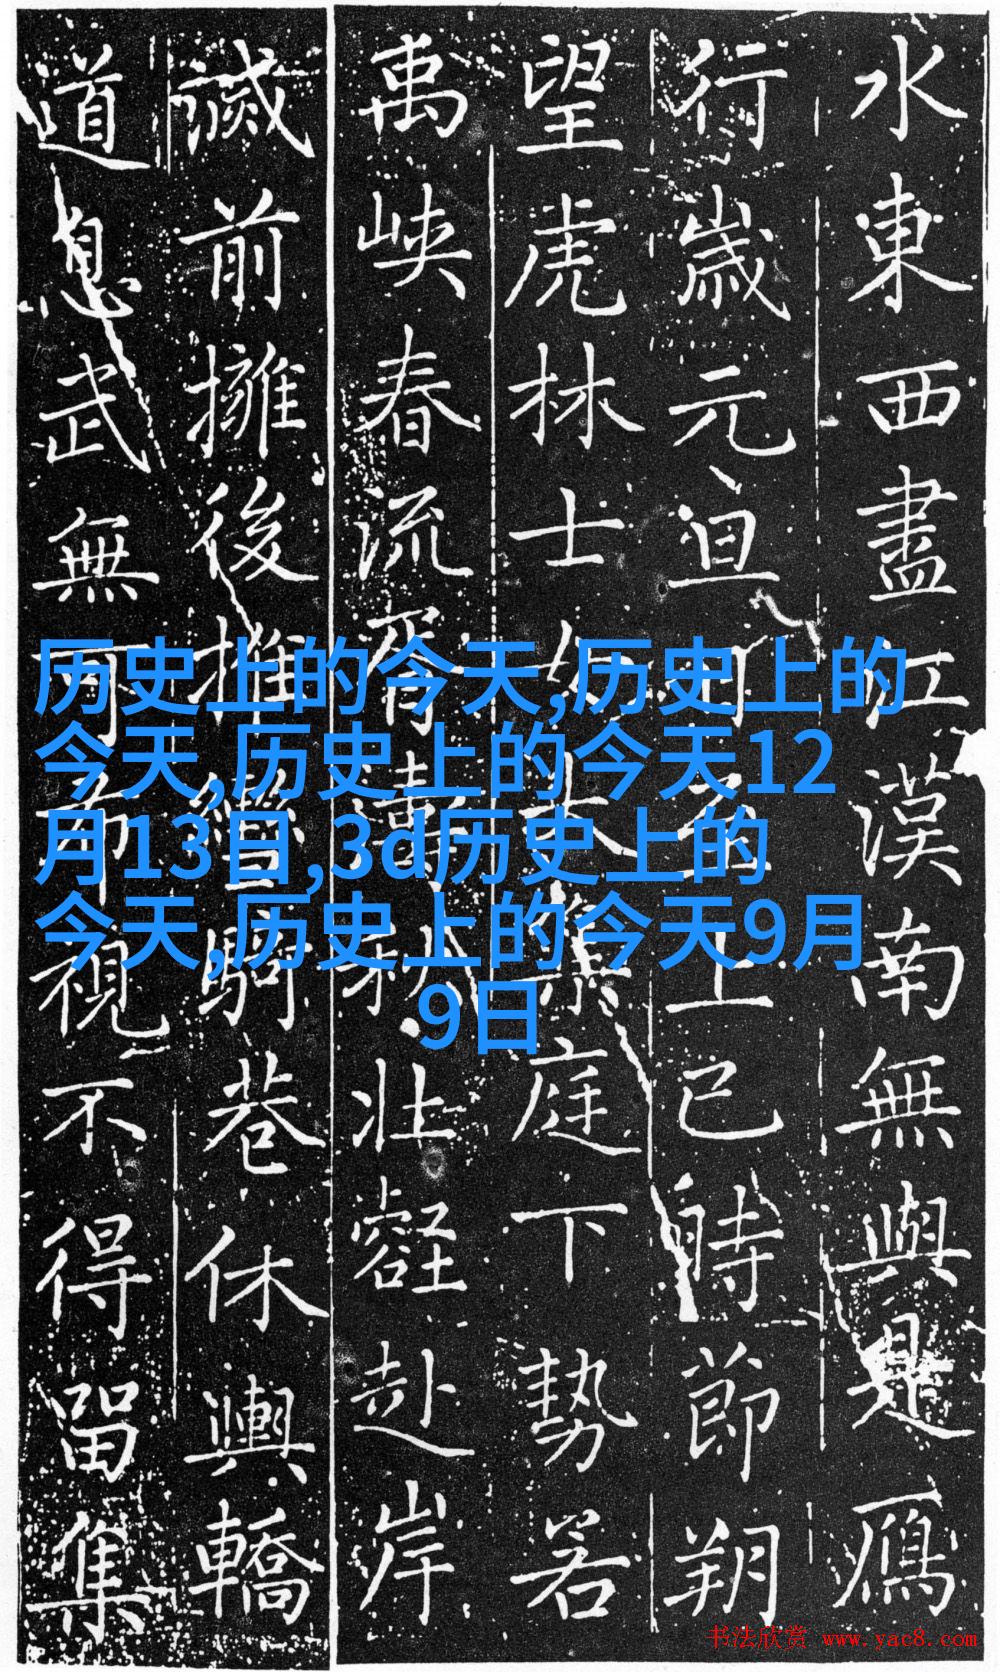 水東西盡江漢南無與是鴈
行歲元旦上巳時節朔
望虎林士女大集庭下勢若
禹峽春流胥濤秋壯壑赴岸
滅前擁後推騎巷休輿轎
道息武無可視不得留集
历史上的今天,历史上的
今天,历史上的今天12
月13日,3d历史上的
今天,历史上的今天9月
9日
书法欣赏 www.yac8.com